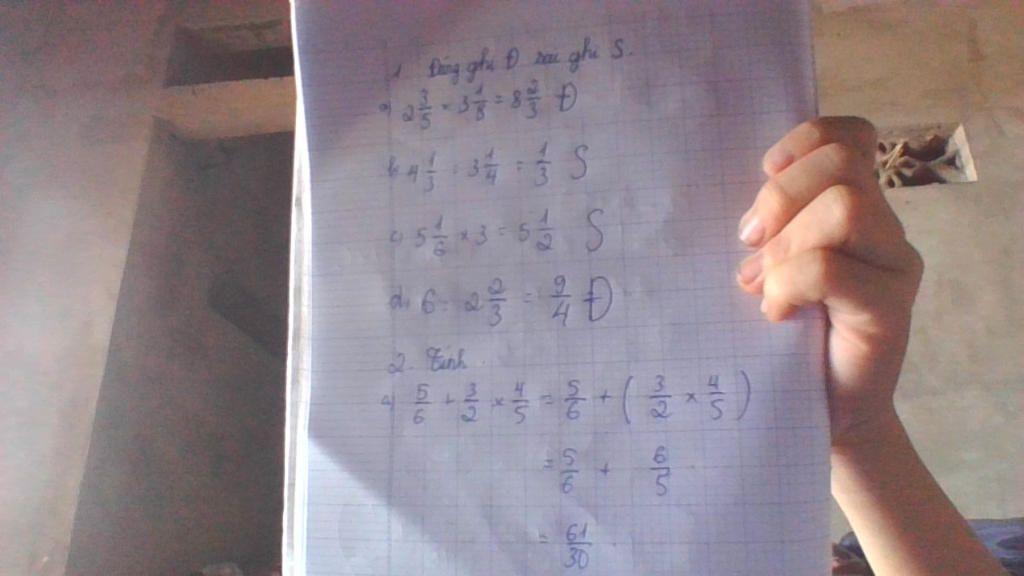 1 Đúng ghi Đ sai ghi S.
a) 2 3/5 × 3 1/3 = 8 2/3 Đ
b) 4 1/3 : 3 1/4 = 1/3 S
c) 5 1/6 × 3 = 5 1/2 S
d) 6 : 2 2/3 = 9/4 Đ
2. Tính.
a) 5/6 + 3/2 × 4/5 = 5/6 + ( 3/2 × 4/5 )
= 5/6 + 6/5
= 61/30